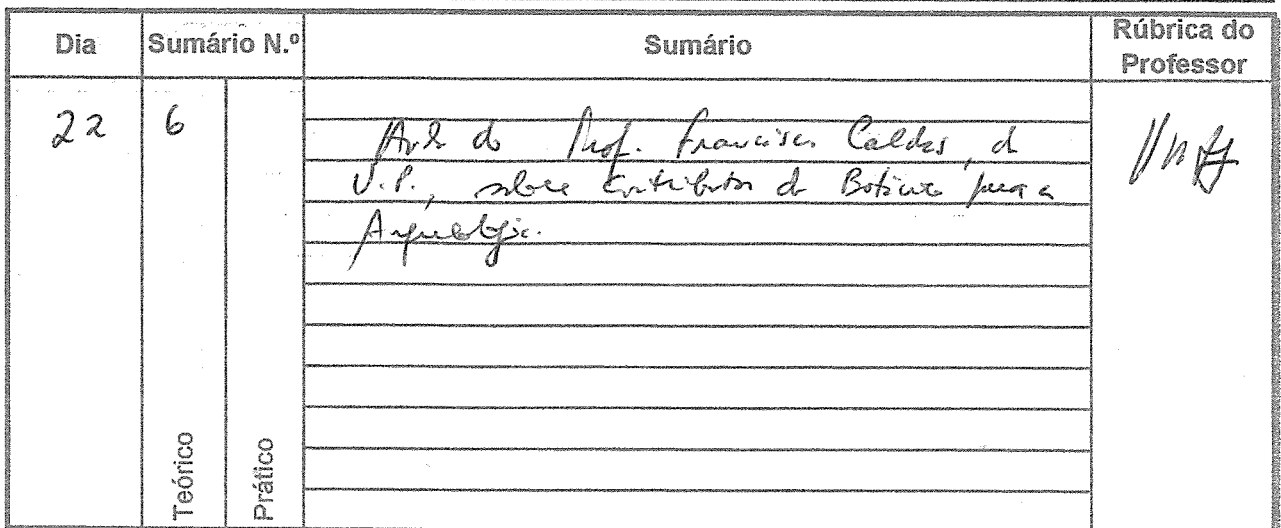 Dia Sumário N.º Sumário Rúbrica do Professor
22 6 Aula do Prof. Francisco Caldas, da
U.P., sobre Contributos da Botânica para a
Arqueologia.
Teórico Prático